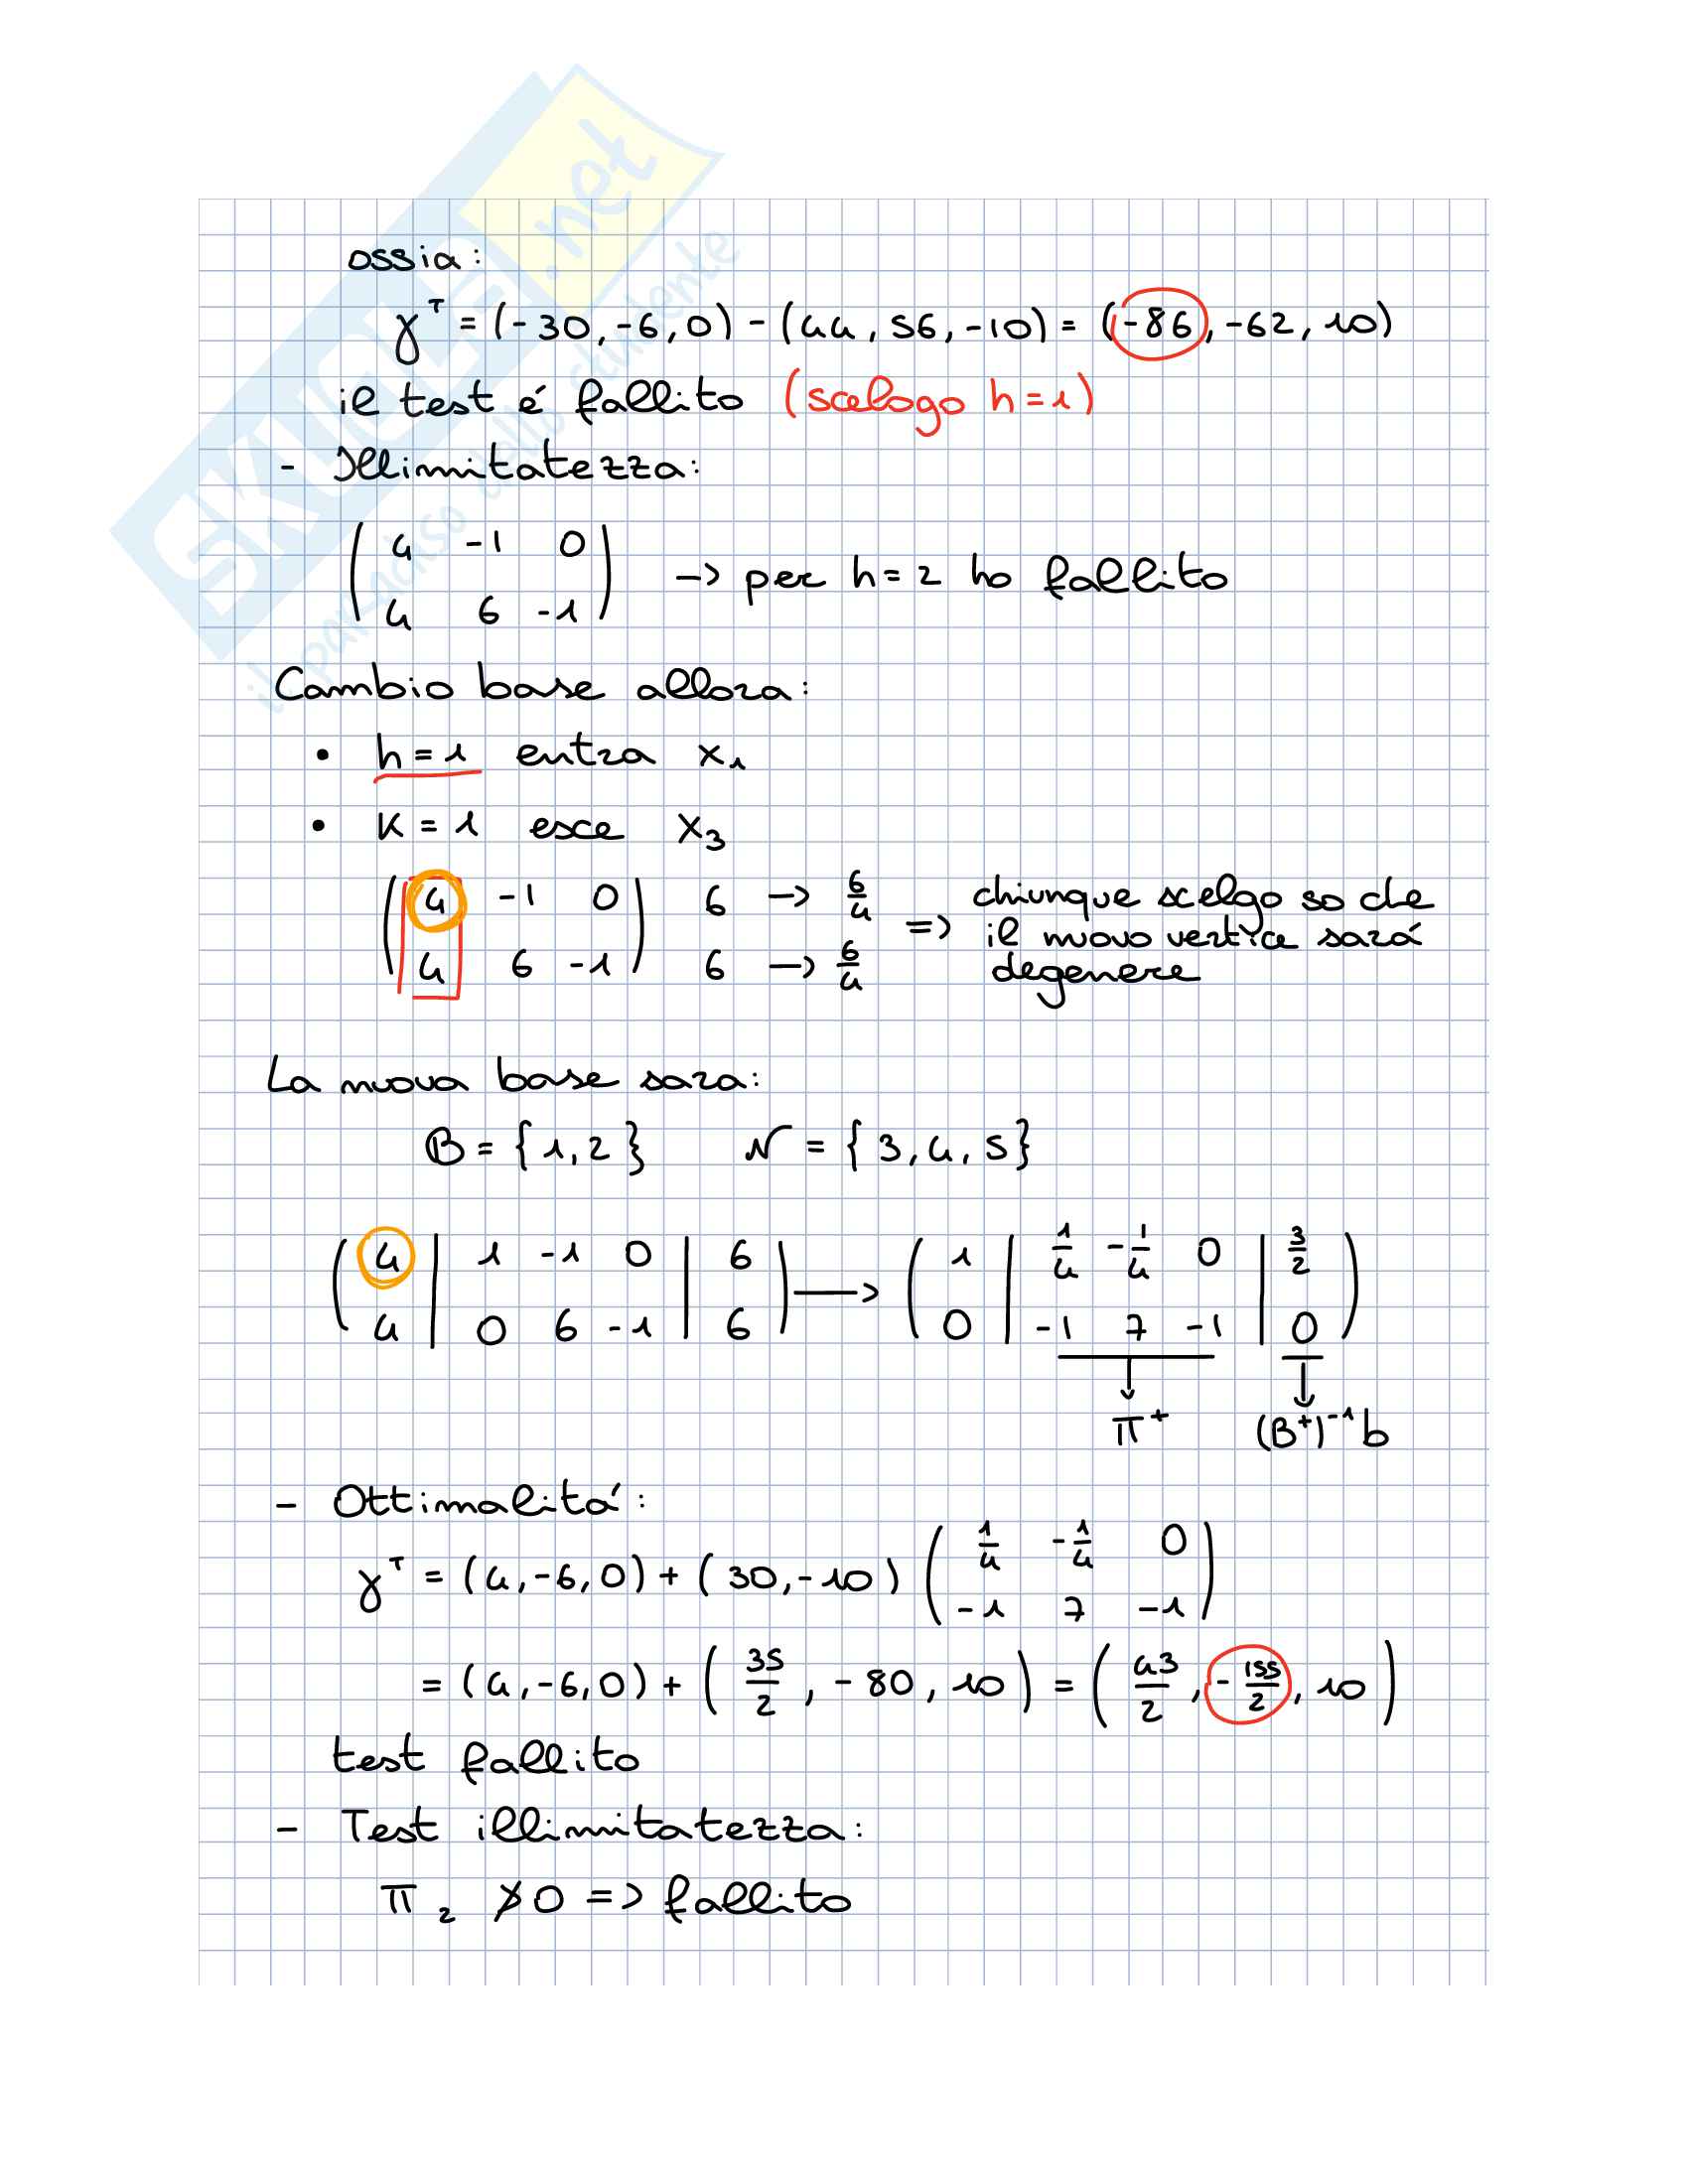 ossia:
γᵀ = (-30, -6, 0) - (44, 56, -10) = (-86, -62, 10)
il test é fallito (scelogo h=1)
- Illimitatezza:
( 4 -1 0 )
( 4 6 -1 ) -> per h=2 ho fallito
Cambio base allora:
• h=1 entra x₁
• K=1 esce x₃
( 4 -1 0 ) 6 -> 6/4
( 4 6 -1 ) 6 -> 6/4
=> chiunque scelgo so che
il nuovo vertice sará
degenere
La nuova base sara:
B = {1,2} N = {3,4,5}
( 4 | 1 -1 0 | 6 ) -> ( 1 | 1/4 -1/4 0 | 3/2 )
( 4 | 0 6 -1 | 6 ) ( 0 | -1 7 -1 | 0 )
π⁺ (B⁺)⁻¹b
- Ottimalitá:
γᵀ = (4, -6, 0) + (30, -10) ( 1/4 -1/4 0 )
( -1 7 -1 )
= (4, -6, 0) + ( 35/2, -80, 10 ) = ( 43/2, -155/2, 10 )
test fallito
- Test illimitatezza:
π₂ ≯ 0 => fallito
SKUOLA.net
il paradiso dello studente